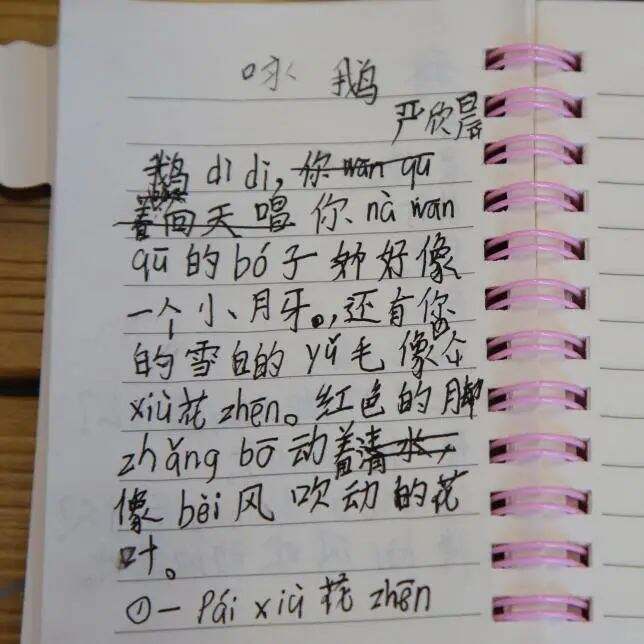 咏鹅
严欣晨
鹅dì di,你 wān qū
着向天唱你nà wān
qū的bó子 好像
一个小月牙。,还有你
的雪白的yǔ毛像个
xiù花zhēn。红色的脚
zhǎng bō动着清水,
像bèi风吹动的花
叶。
①一Pái xiù花zhēn